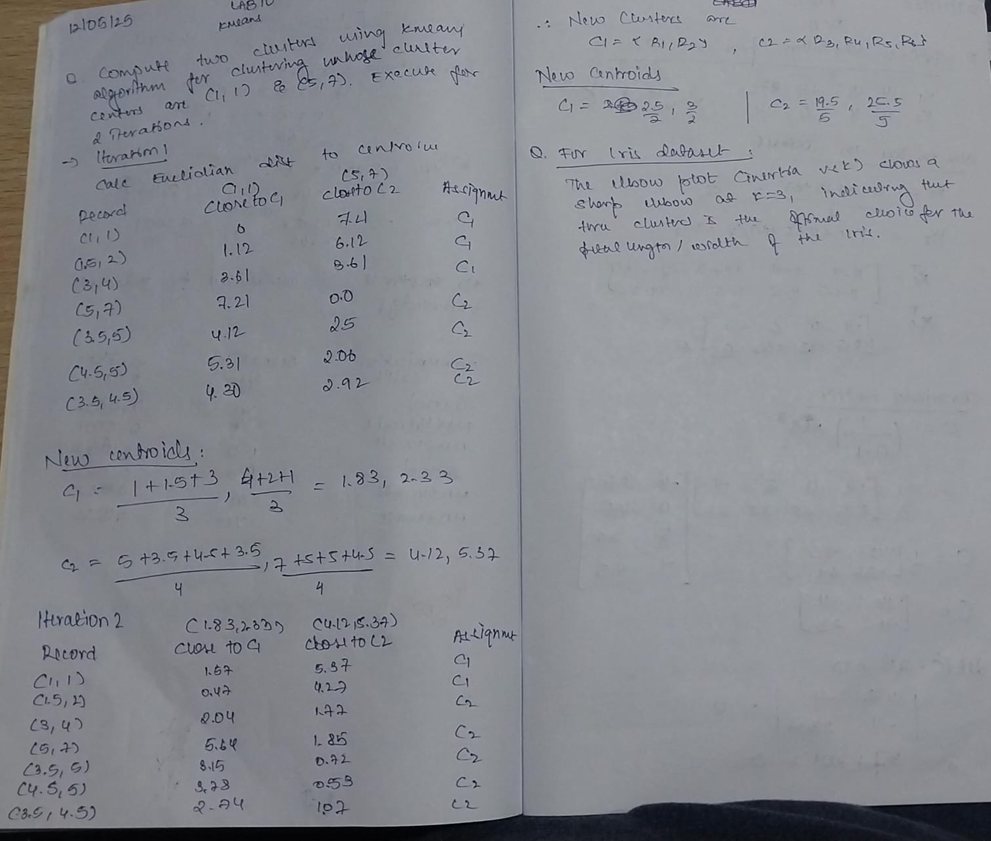 12/05/25
LAB 10
kmeans
Q. Compute two clusters using kmeans
algorithm for clustering whose cluster
centers are (1,1) & (5,7). Execute for
2 iterations.
→ Iteration 1
Calc Euclidian dist to centroids
(1,1) (5,7)
Record Close to C1 Close to C2 Assignmt
(1,1) 0 7.21 C1
(1.5,2) 1.12 6.12 C1
(3,4) 3.61 3.61 C1
(5,7) 7.21 0.0 C2
(3.5,5) 4.12 2.5 C2
(4.5,5) 5.31 2.06 C2
(3.5,4.5) 4.30 2.92 C2
New centroids:
C1 = 1+1.5+3 / 3 , 4+2+1 / 3 = 1.83, 2.33
C2 = 5+3.5+4.5+3.5 / 4 , 7+5+5+4.5 / 4 = 4.12, 5.37
Iteration 2 (1.83,2.33) (4.12,5.37)
Record Close to C1 Close to C2 Assignmt
(1,1) 1.57 5.37 C1
(1.5,2) 0.47 4.27 C1
(3,4) 2.04 1.77 C2
(5,7) 5.64 1.85 C2
(3.5,5) 3.15 0.72 C2
(4.5,5) 3.78 0.53 C2
(3.5,4.5) 2.74 1.07 C2
∴ New Clusters are
C1 = { R1, R2 } , C2 = { R3, R4, R5, R6 }
New Centroids
C1 = 2.5/2 , 3/2 | C2 = 19.5/5 , 25.5/5
Q. For Iris dataset:
The elbow plot (inertia vs k) shows a
sharp elbow at k=3, indicating that
three clusters is the optimal choice for the
petal length / width of the iris.